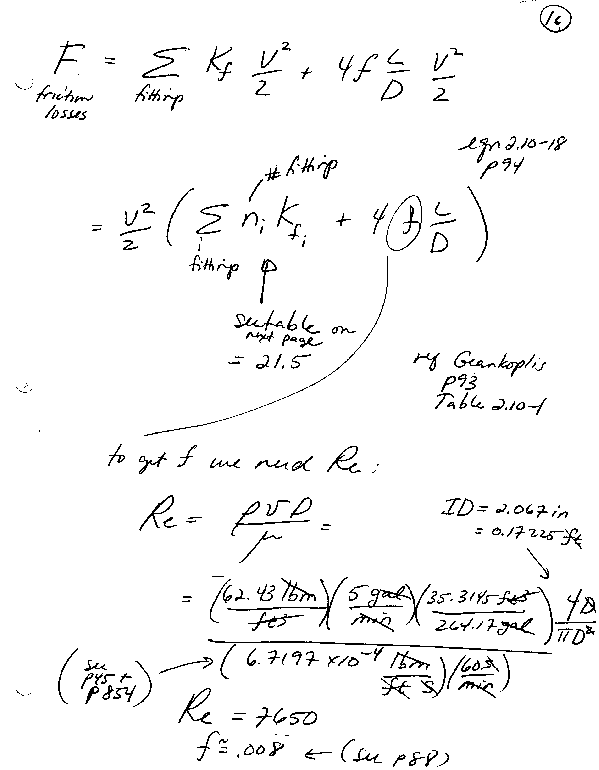 16
F = Σ K_f v²/2 + 4f L/D v²/2
friction losses
fittings
eqn 2.10-18
p94
# fittings
= v²/2 ( Σ n_i K_f_i + 4 f L/D )
fittings
see table on
next page
= 21.5
ref Geankoplis
p93
Table 2.10-1
to get f we need Re:
Re = ρvD/μ =
ID = 2.067 in
= 0.17225 ft
= (62.43 lbm/ft³)(5 gal/min)(35.3145 ft³/264.17 gal) 4D/πD² / (6.7197 x10⁻⁴ lbm/ft s)(60 s/min)
(see
p45 +
p854)
Re = 7650
f ≅ .008 ← (see p88)